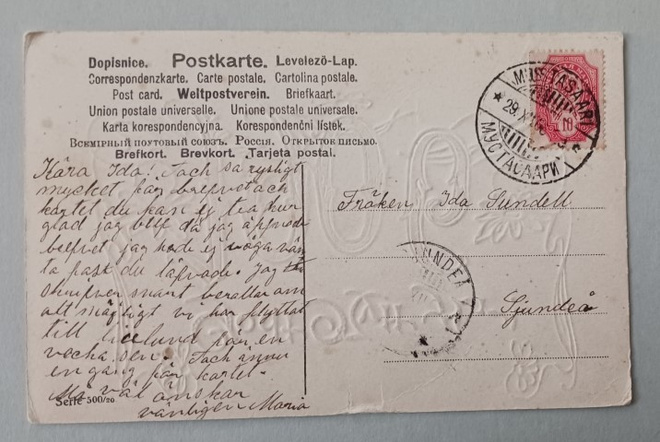 Dopisnice. Postkarte. Levelező-Lap.
Correspondenzkarte. Carte postale. Cartolina postale.
Post card. Weltpostverein. Briefkaart.
Union postale universelle. Unione postale universale.
Karta korespondencyjna. Korespondenční lístek.
Всемирный почтовый союзъ. Россія. Открытое письмо.
Brefkort. Brevkort. Tarjeta postal.
MUSTASAARI
МУСТАСААРИ
Kära Ida! Tack så
mycket för brefvet och
kortet du kan ej tro hur
glad jag blef då jag öppnade
brefvet jag hade ej
ta pass du jag
snart berättar om
allt möjligt vi har flyttat
till för en
vecka sen. Tack ännu
en gång för kortet.
Må väl önskar
vänligen Maria
Serie 500/20
Fröken Ida Sundell
Sjundeå